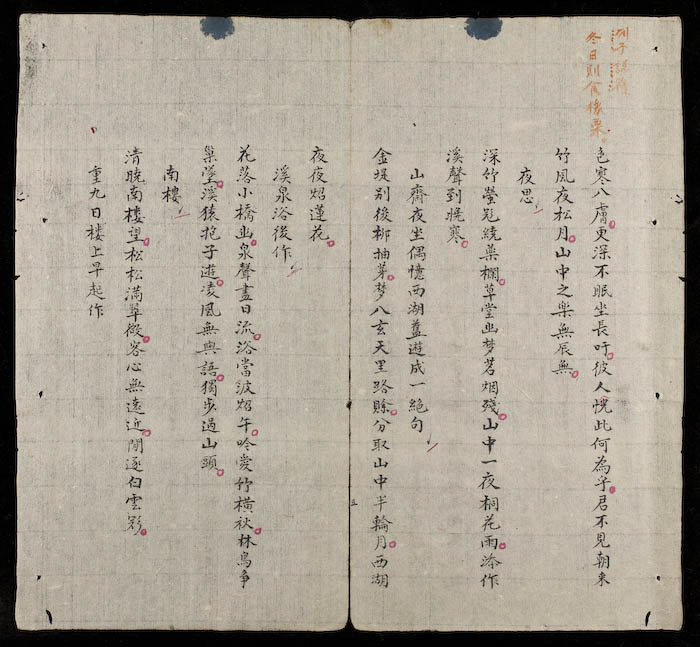 冬日則食橡栗
色寒入膚更深不眠坐長吁彼人恍此何為乎君不見朝來
竹風夜松月山中之樂無辰無
夜思
深竹螢冠繞藥欄草堂幽梦茗烟殘山中一夜桐花雨添作
溪聲到掟寒
山齋夜坐偶憶西湖蓋遊成一絕句
金堤别後柳抽芽梦入玄天里路賒分取山中半輪月西湖
夜夜炤蓮花
溪泉浴後作
花落小橋幽泉聲盡日流浴當波炤午吟愛竹橫秋林鳥爭
巢墬溪猿抱子遊凌風無與語獨步過山頭
南樓
清曉南樓望松松滿翠微客心無遠近閒逐白雲
重九日楼上早起作
五